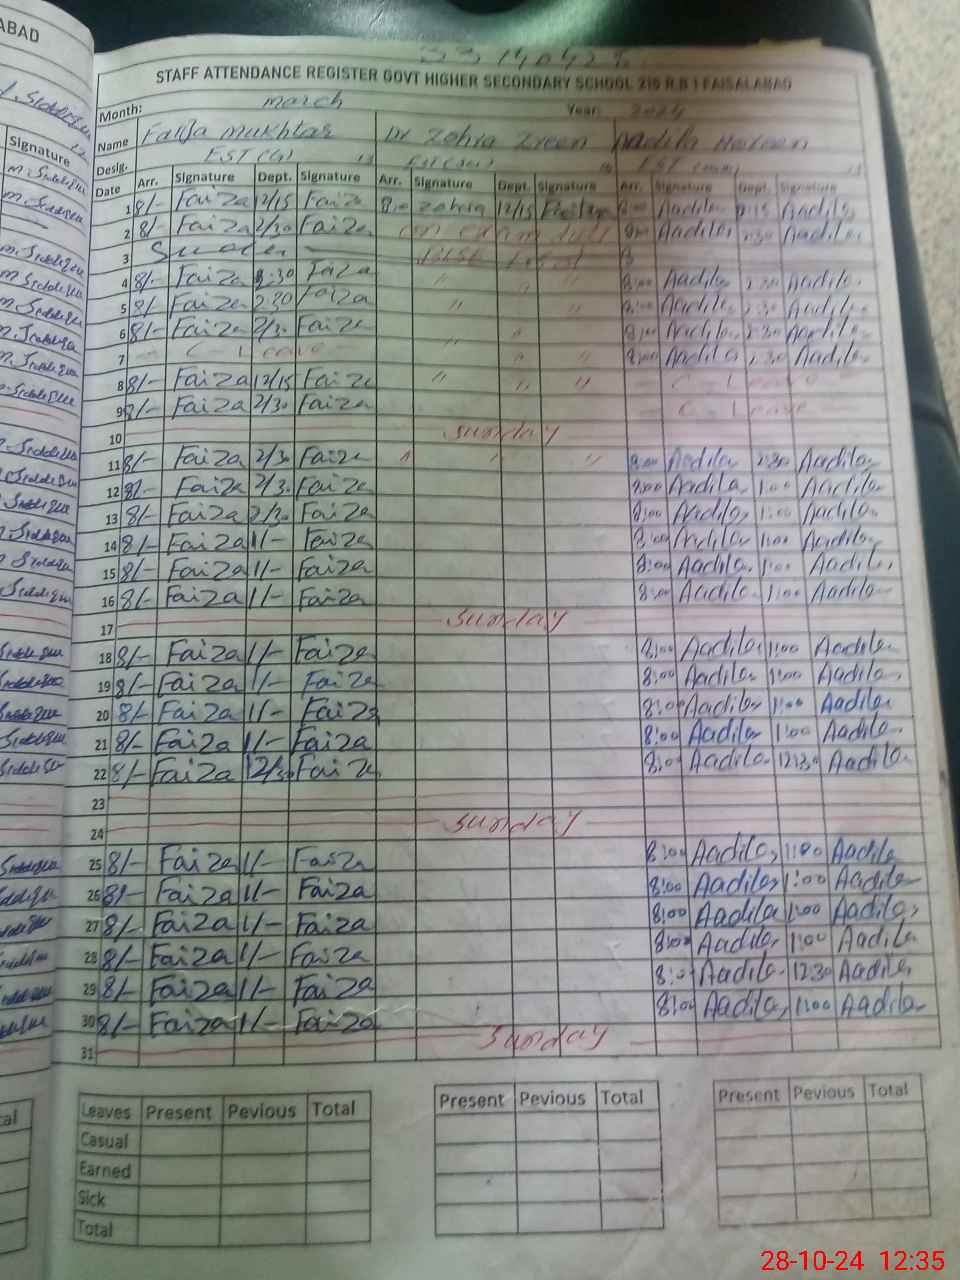 ABAD
Signature
STAFF ATTENDANCE REGISTER GOVT HIGHER SECONDARY SCHOOL 216 R.B I FAISALABAD
Month: march Year: 2024
Name Faiza Mukhtar Dr Zohra Zreen Aadila
Desig. EST (G)
Date Arr. Signature Dept. Signature Arr. Signature Dept. Signature Arr. Signature Dept. Signature
1 8/- Faiza 12/15 Faiza 8:00 Zohra 12/15 8:00 Aadila 12:15 Aadila
2 8/- Faiza 2/30 Faiza on exam duty 8:00 Aadila 2:30 Aadila
3
4 8/- Faiza 2:30 Faiza " " " 8:00 Aadila 2:30 Aadila
5 8/- Faiza 2:30 Faiza " " 8:00 Aadila 2:30 Aadila
6 8/- Faiza 2/30 Faiza " 8:00 Aadila 2:30 Aadila
7 C- Leave " " " 8:00 Aadila 2:30 Aadila
8 8/- Faiza 12/15 Faiza " " " C- Leave
9 8/- Faiza 2/30 Faiza C. Leave
10 sunday
11 8/- Faiza 2/30 Faiza " " " 8:00 Aadila 2:30 Aadila
12 8/- Faiza 2/30 Faiza 8:00 Aadila 1:00 Aadila
13 8/- Faiza 2/30 Faiza 8:00 Aadila 1:00 Aadila
14 8/- Faiza 1/- Faiza 8:00 Aadila 1:00 Aadila
15 8/- Faiza 1/- Faiza 8:00 Aadila 1:00 Aadila
16 8/- Faiza 1/- Faiza 8:00 Aadila 1:00 Aadila
17 sunday
18 8/- Faiza 1/- Faiza 8:00 Aadila 1:00 Aadila
19 8/- Faiza 1/- Faiza 8:00 Aadila 1:00 Aadila
20 8/- Faiza 1/- Faiza 8:00 Aadila 1:00 Aadila
21 8/- Faiza 1/- Faiza 8:00 Aadila 1:00 Aadila
22 8/- Faiza 12/30 Faiza 8:00 Aadila 12:30 Aadila
23
24 sunday
25 8/- Faiza 1/- Faiza 8:00 Aadila 1:00 Aadila
26 8/- Faiza 1/- Faiza 8:00 Aadila 1:00 Aadila
27 8/- Faiza 1/- Faiza 8:00 Aadila 1:00 Aadila
28 8/- Faiza 1/- Faiza 8:00 Aadila 1:00 Aadila
29 8/- Faiza 1/- Faiza 8:00 Aadila 12:30 Aadila
30 8/- Faiza 1/- Faiza 8:00 Aadila 1:00 Aadila
31 Sunday
Leaves Present Pevious Total Present Pevious Total Present Pevious Total
Casual
Earned
Sick
Total
28-10-24 12:35